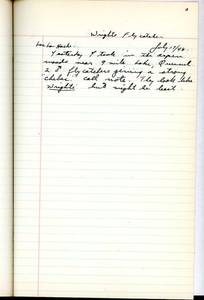 Wright's Flycatcher
July 15/42.
Yesterday I took in the aspen
woods near 9 mile Lake, Quesnel
2 ♂ flycatchers giving a strong
call note. They look like
Wright's but might be least